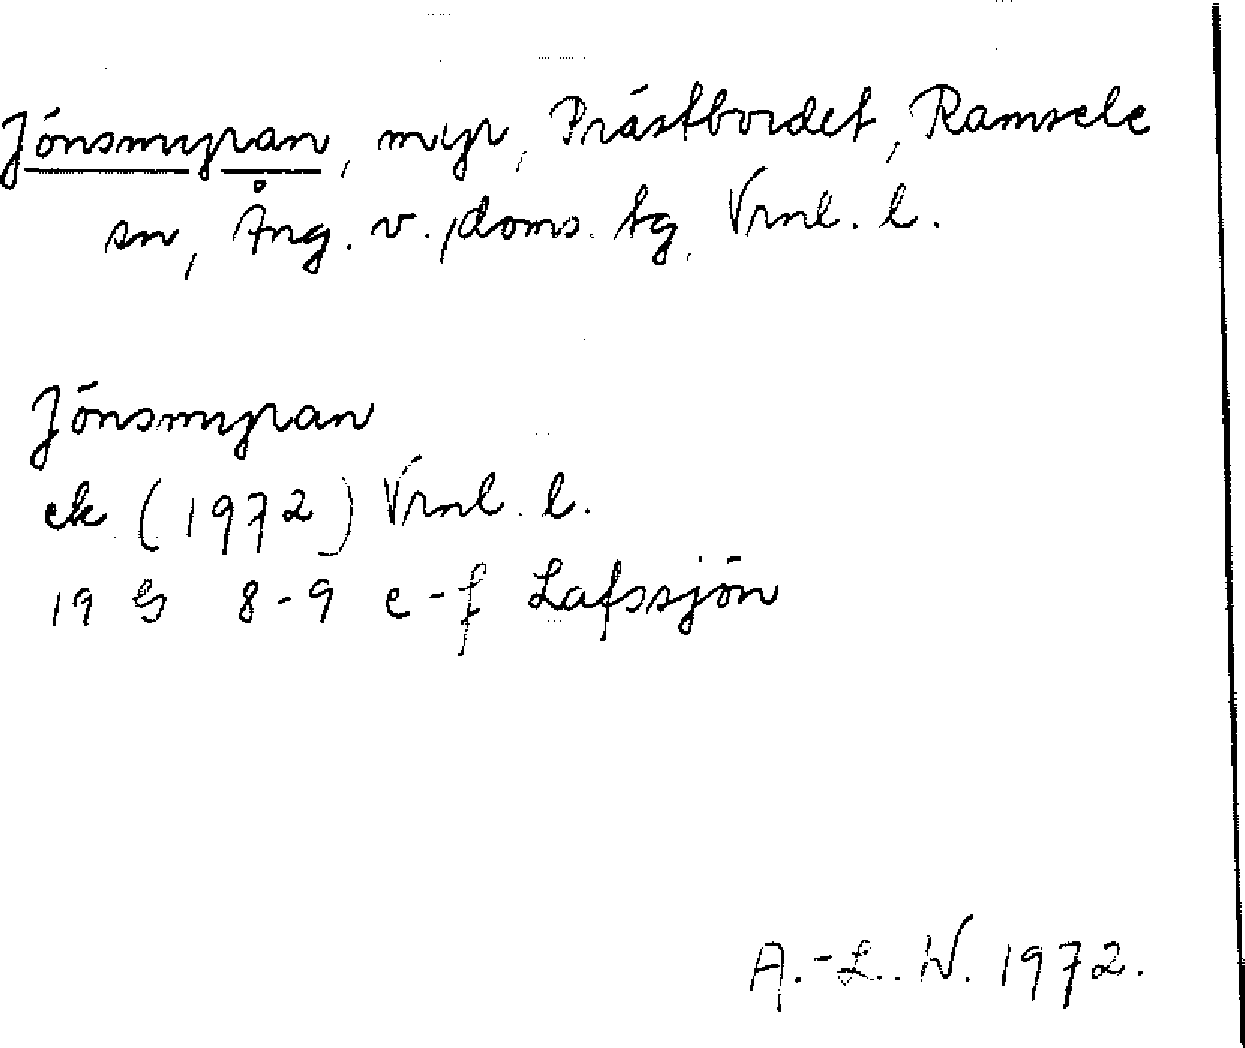 Jönsmyran, myr, Prästbordet, Ramsele
sn, Ång. v. doms. tg. Vrnl. l.
Jönsmyran
ek (1972) Vrnl. l.
19 G 8-9 e-f Lafssjön
A.-L. W. 1972.